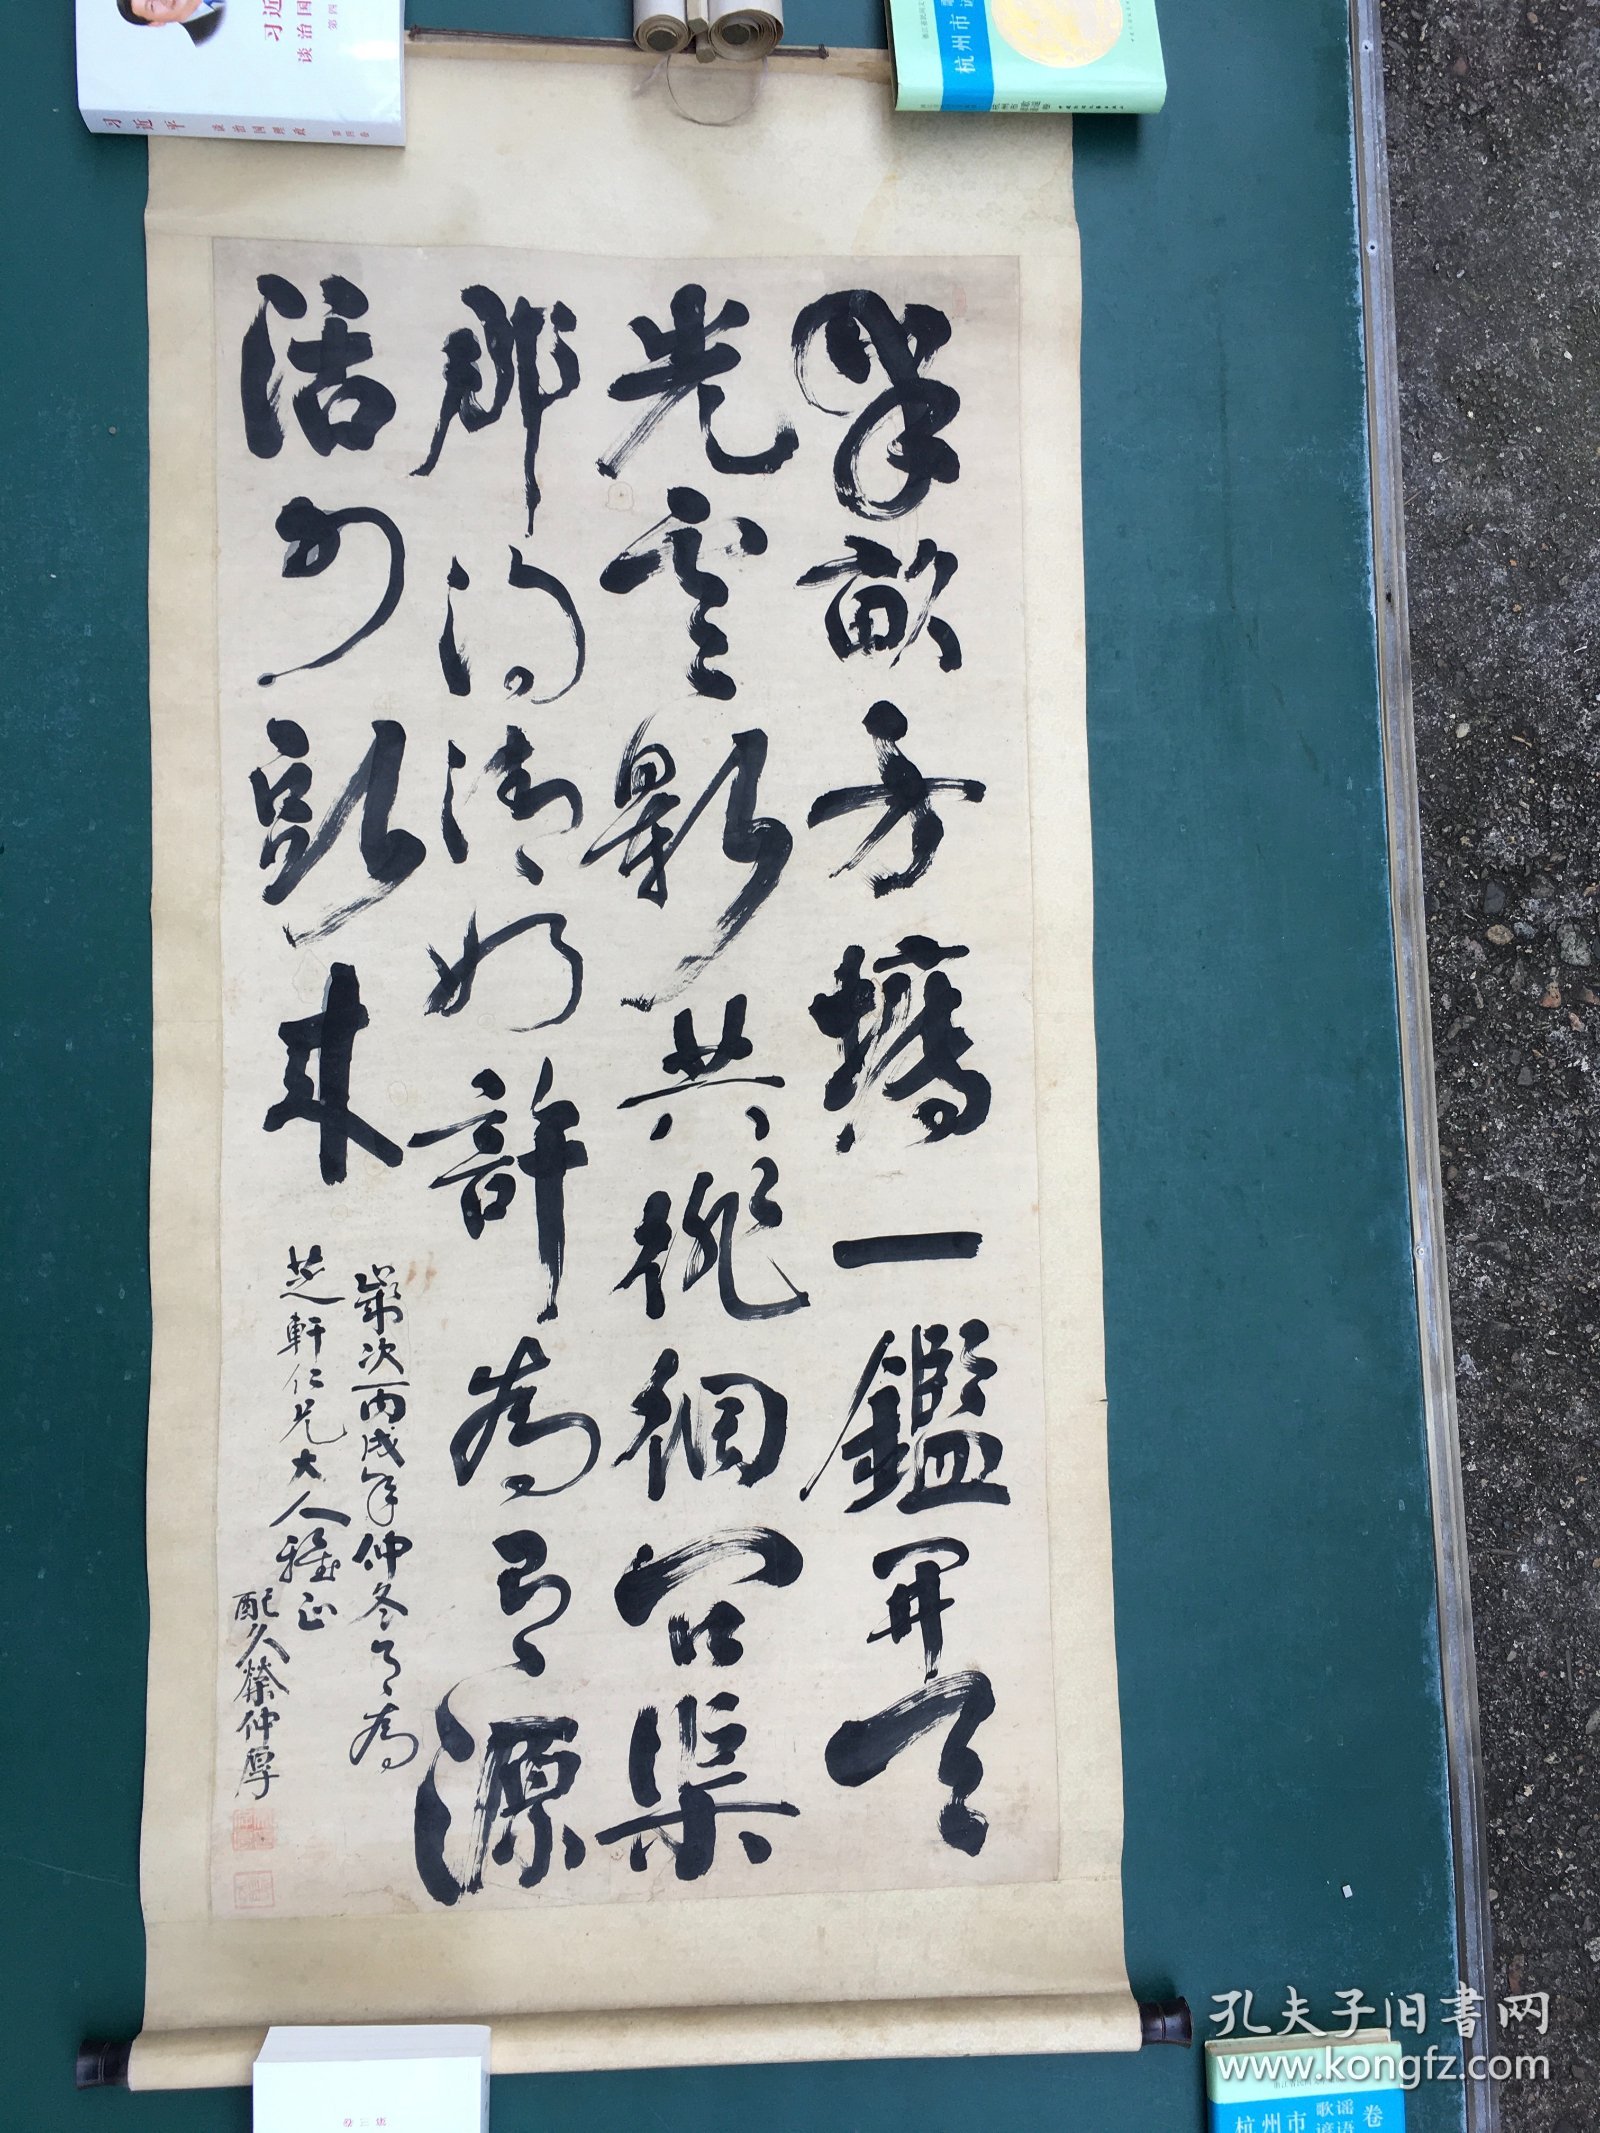 半畝方塘一鑑開天
光雲影共徘徊問渠
那得清如許為有源
活水頭來
歲次丙戌年仲冬月為
芝軒仁兄大人雅正
配久榮仲厚
习近平
谈治国理政
第四卷
杭州市
杭州市歌谣谚语卷
孔夫子旧书网
www.kongfz.com